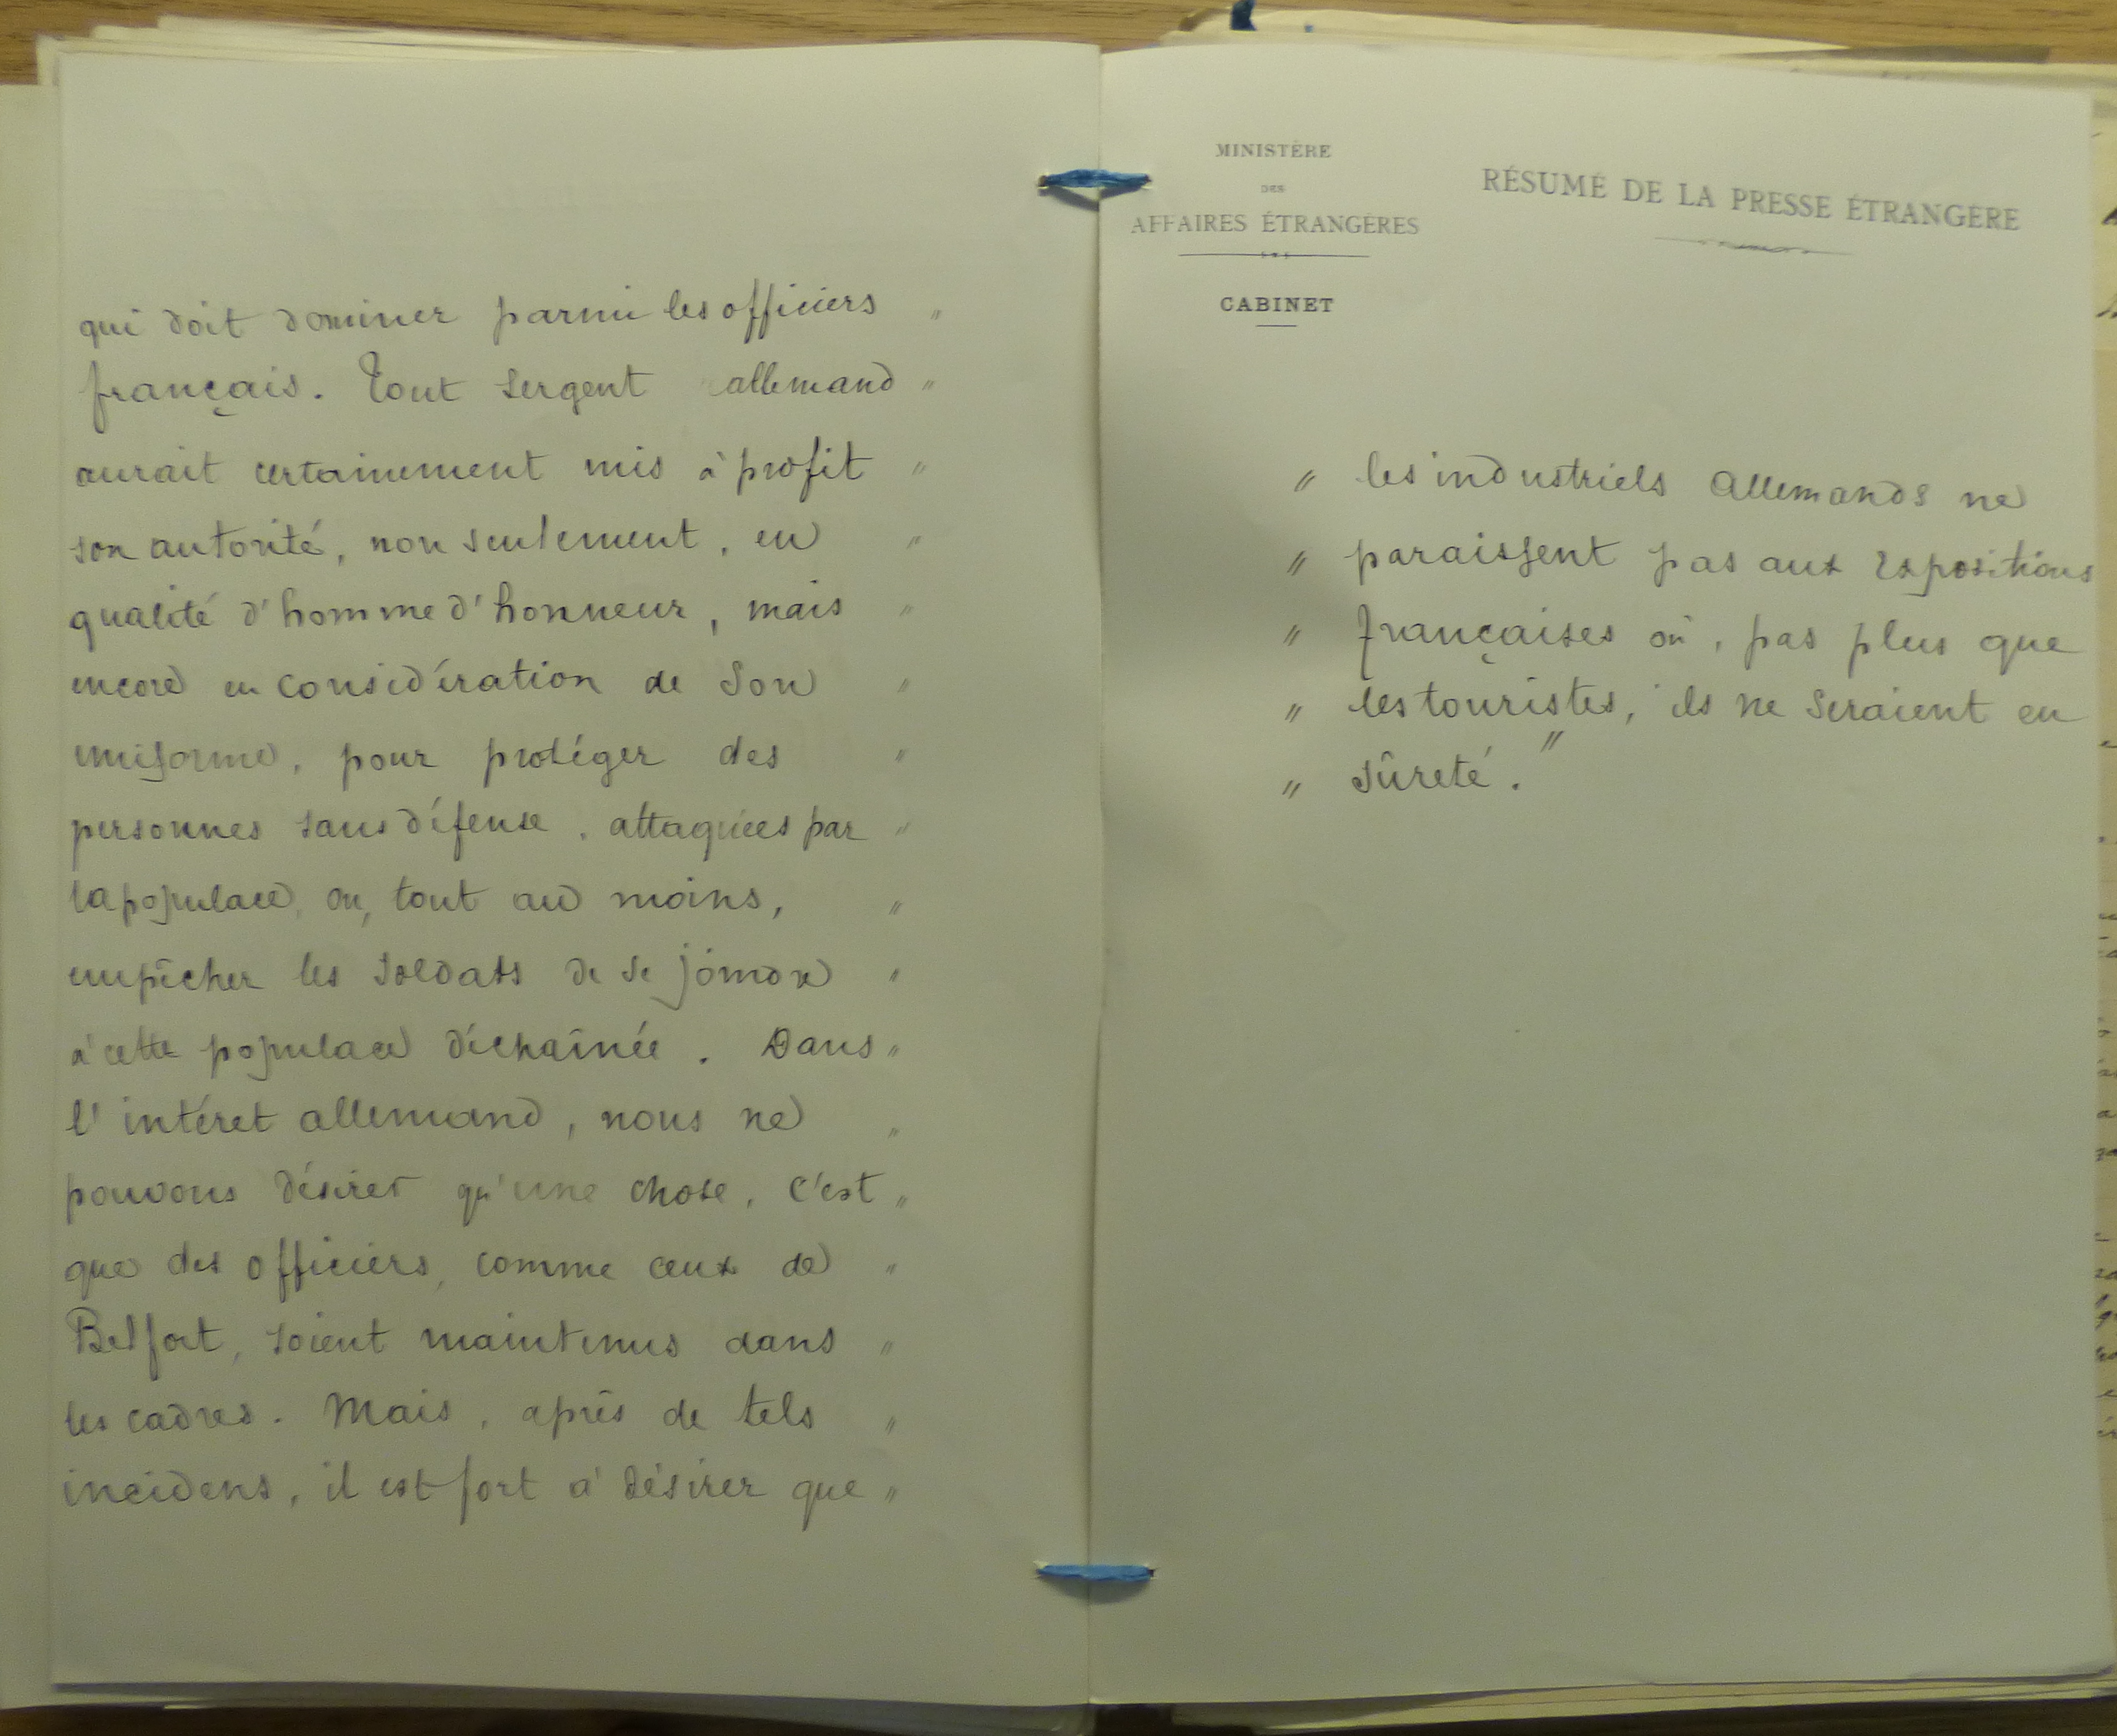 qui doit dominer parmi les officiers "
français. Tout sergent allemand "
aurait certainement mis à profit "
son autorité, non seulement, en "
qualité d'homme d'honneur, mais "
encore en considération de son "
uniforme, pour protéger des "
personnes sans défense, attaquées par "
la populace, ou, tout au moins, "
empêcher les soldats de se joindre "
à cette populace déchaînée. Dans "
l'intéret allemand, nous ne "
pouvons désirer qu'une chose, c'est "
que des officiers, comme ceux de "
Belfort, soient maintenus dans "
les cadres. Mais, après de tels "
incidens, il est fort à désirer que "
MINISTÈRE
DES
AFFAIRES ÉTRANGÈRES
CABINET
RÉSUMÉ DE LA PRESSE ÉTRANGÈRE
" les industriels allemands ne
" paraissent pas aux expositions
" françaises où, pas plus que
" les touristes, ils ne seraient en
" sûreté."